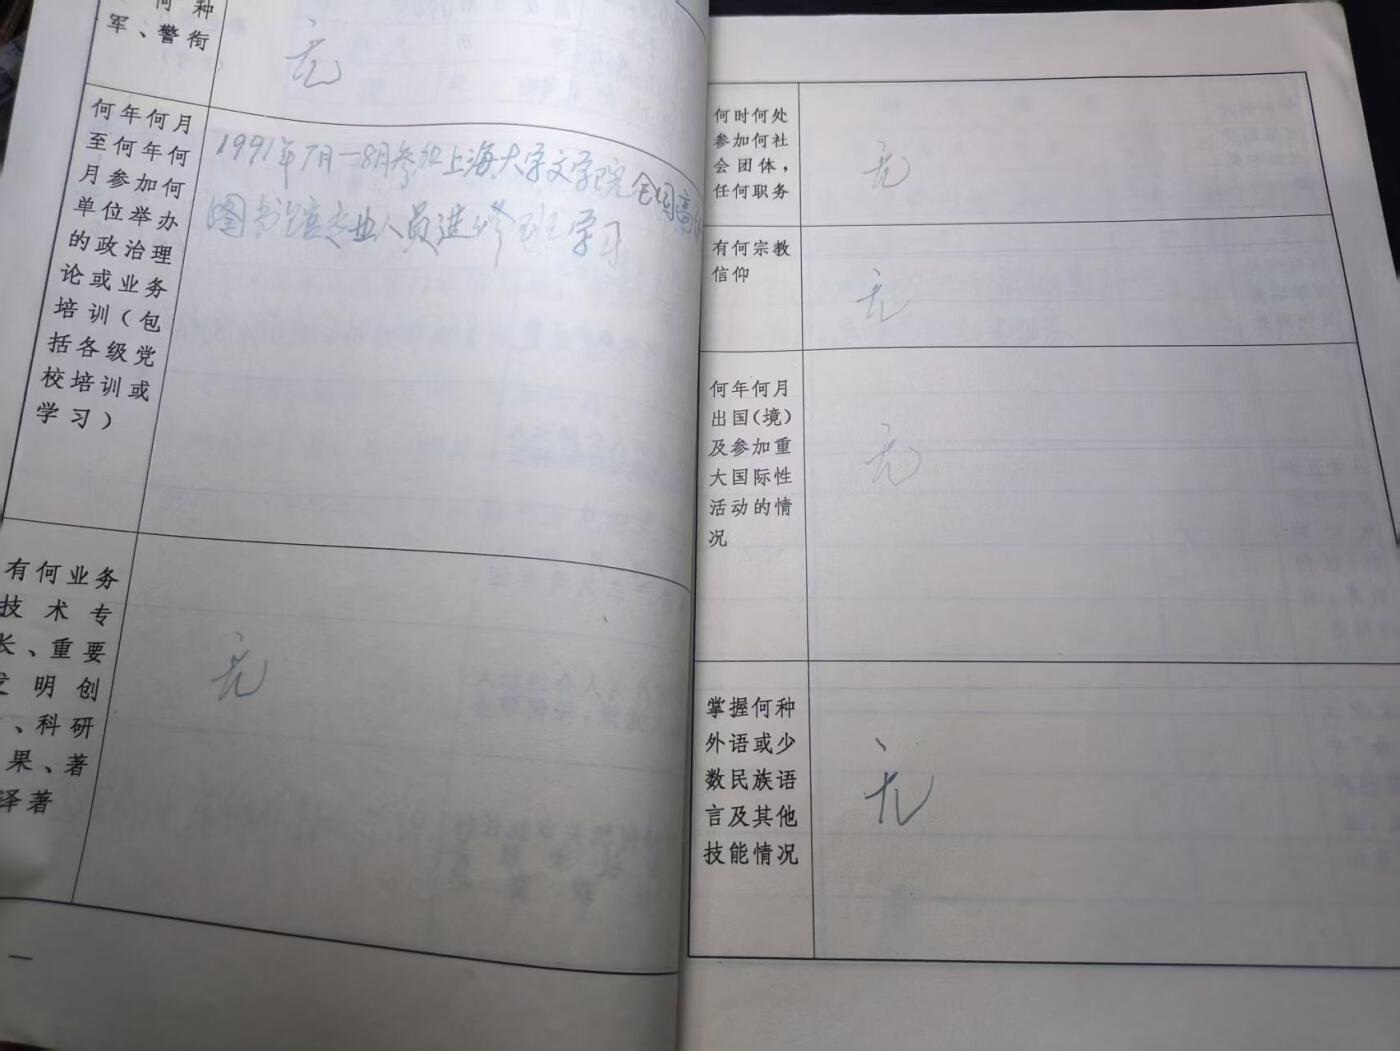 何种
军、警衔
无
何年何月
至何年何
月参加何
单位举办
的政治理
论或业务
培训（包
括各级党
校培训或
学习）
1991年7月—8月参加上海大学文学院全国高
图书馆专业人员进修班学习
有何业务
技术专
长、重要
发明创
、科研
果、著
译著
无
一
何时何处
参加何社
会团体，
任何职务
无
有何宗教
信仰
无
何年何月
出国（境）
及参加重
大国际性
活动的情
况
无
掌握何种
外语或少
数民族语
言及其他
技能情况
无